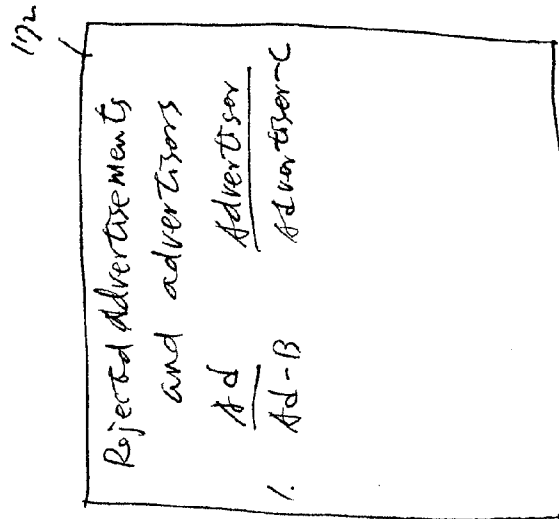 1172
Rejected Advertisements
and advertisors
Ad Advertisor
1. Ad-B Advertiser-C